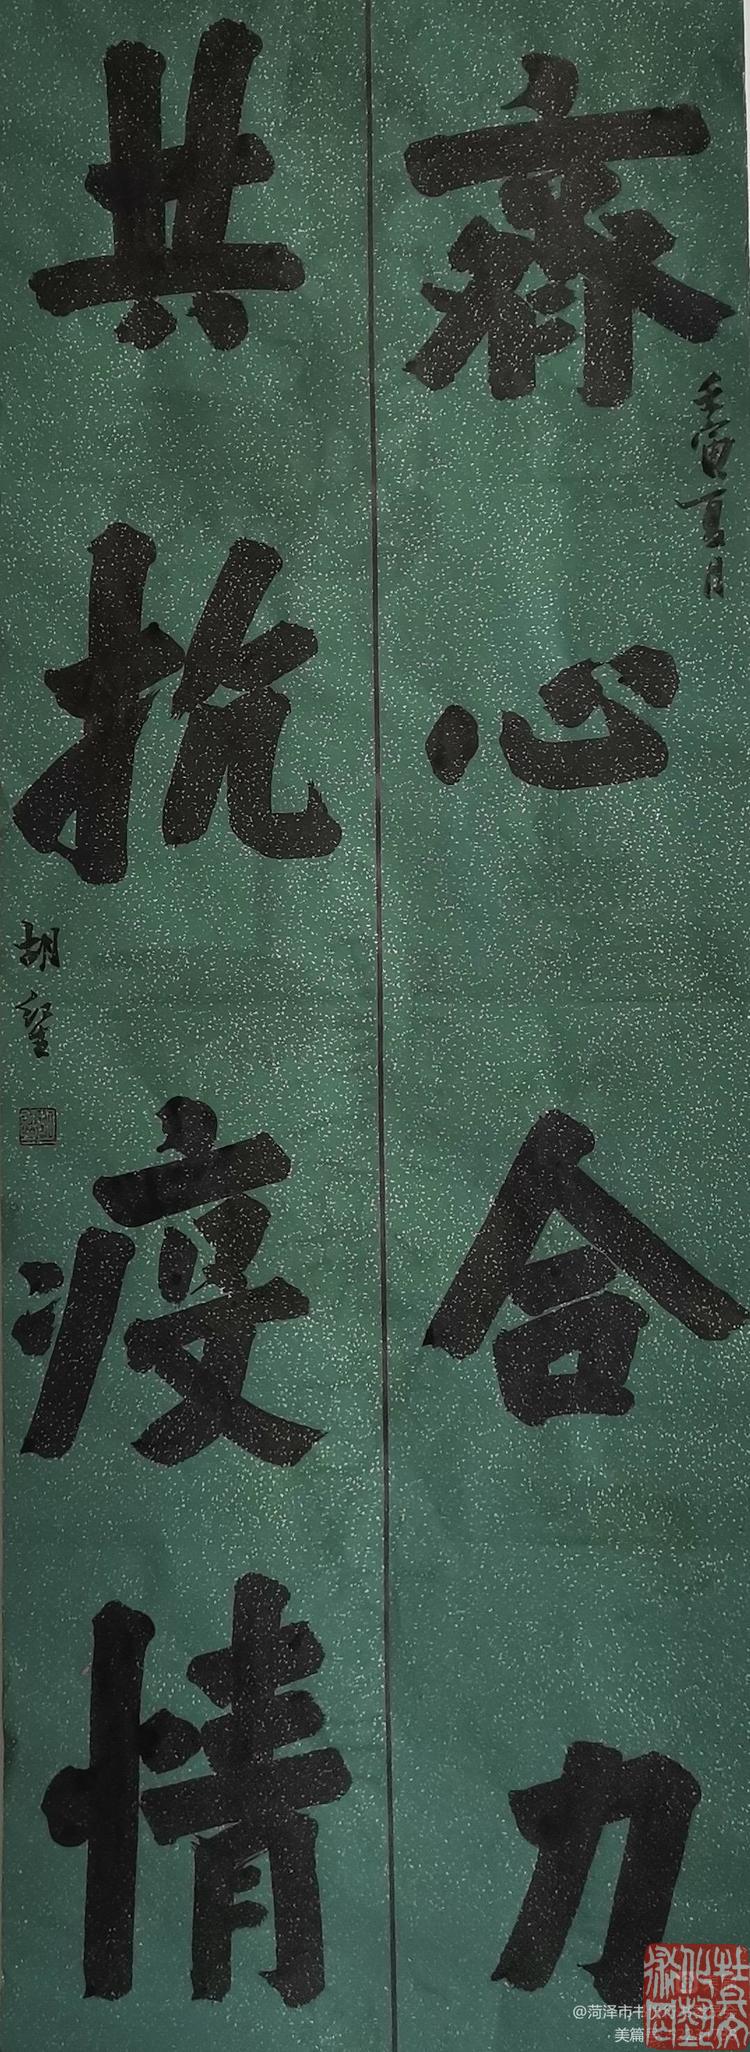 齊心合力
壬寅夏月
共抗疫情
胡
@菏泽市书
美篇